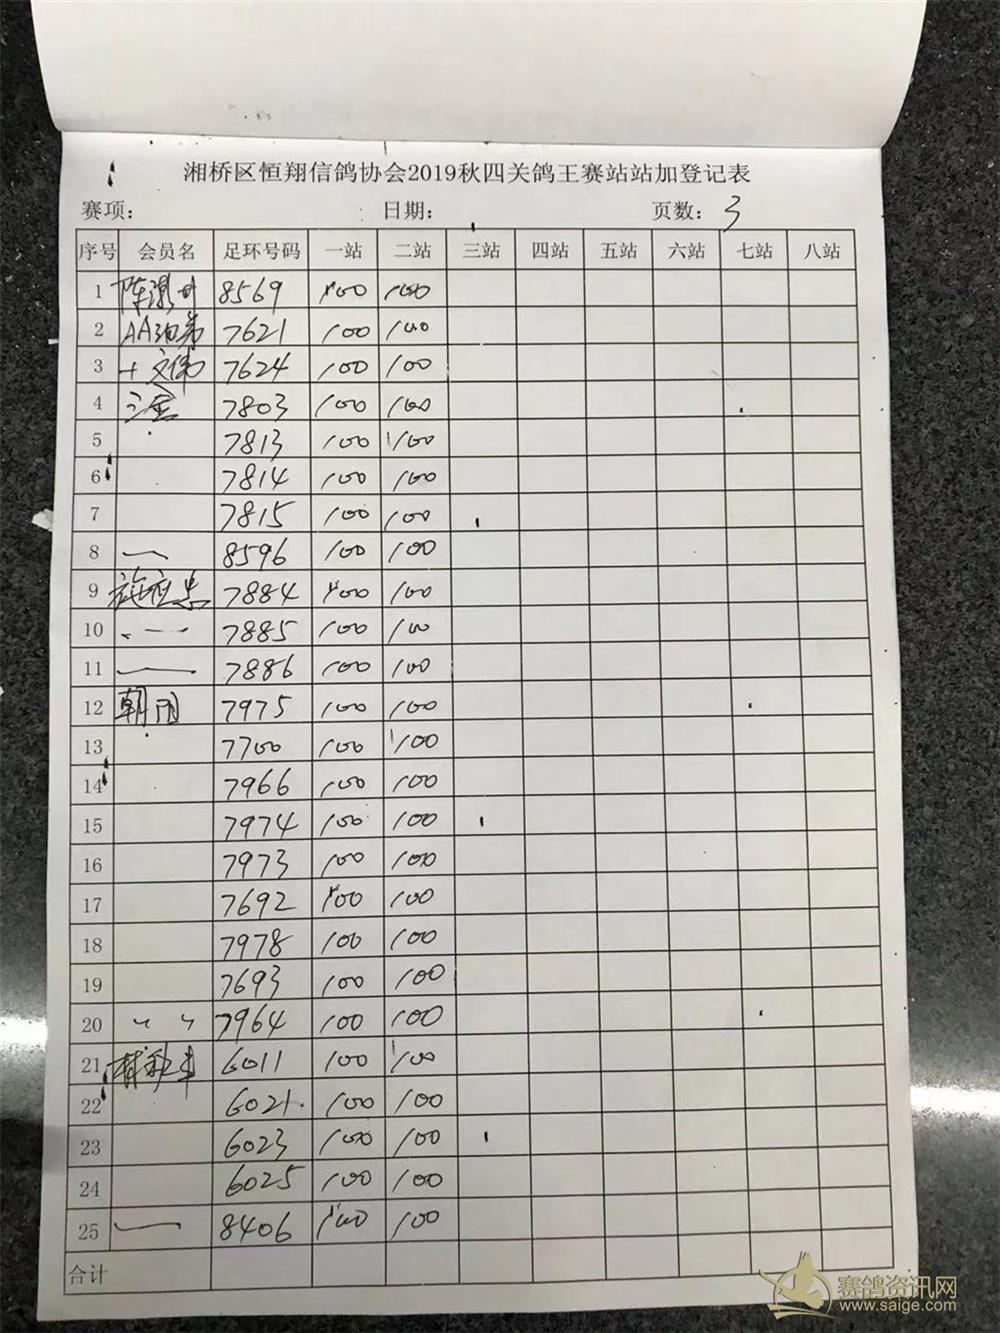 湘桥区恒翔信鸽协会2019秋四关鸽王赛站站加登记表
赛项： 日期： 页数：3
序号 会员名 足环号码 一站 二站 三站 四站 五站 六站 七站 八站
1 8569 100 100
2 7621 100 100
3 7624 100 100
4 三金 7803 100 100
5 7813 100 100
6 7814 100 100
7 7815 100 100
8 8596 100 100
9 7884 100 100
10 7885 100 100
11 7886 100 100
12 7975 100 100
13 7700 100 100
14 7966 100 100
15 7974 100 100
16 7973 100 100
17 7692 100 100
18 7978 100 100
19 7693 100 100
20 7964 100 100
21 6011 100 100
22 6021 100 100
23 6023 100 100
24 6025 100 100
25 8406 100 100
合计
赛鸽资讯网
www.saige.com